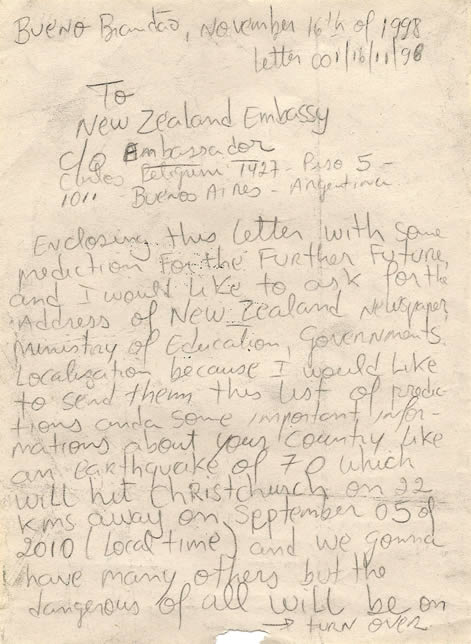 Bueno Brandão, November 16th of 1998
Letter 001/16/11/98
To
New Zealand Embassy
c/o Ambassador
Carlos Pelegrini 1427 - Piso 5 -
1011 - Buenos Aires - Argentina
Enclosing this letter with some
prediction for the further future,
and I would like to ask for the
Address of New Zealand Newspaper,
Ministry of Education, Governments
Localization because I would like
to send them this list of predic-
tions and a some important infor-
mations about your country like
an earthquake of 70 which
will hit Christchurch on 22
kms away on September 05 of
2010 (local time) and we gonna
have many others but the
dangerous of all will be on
→ turn over